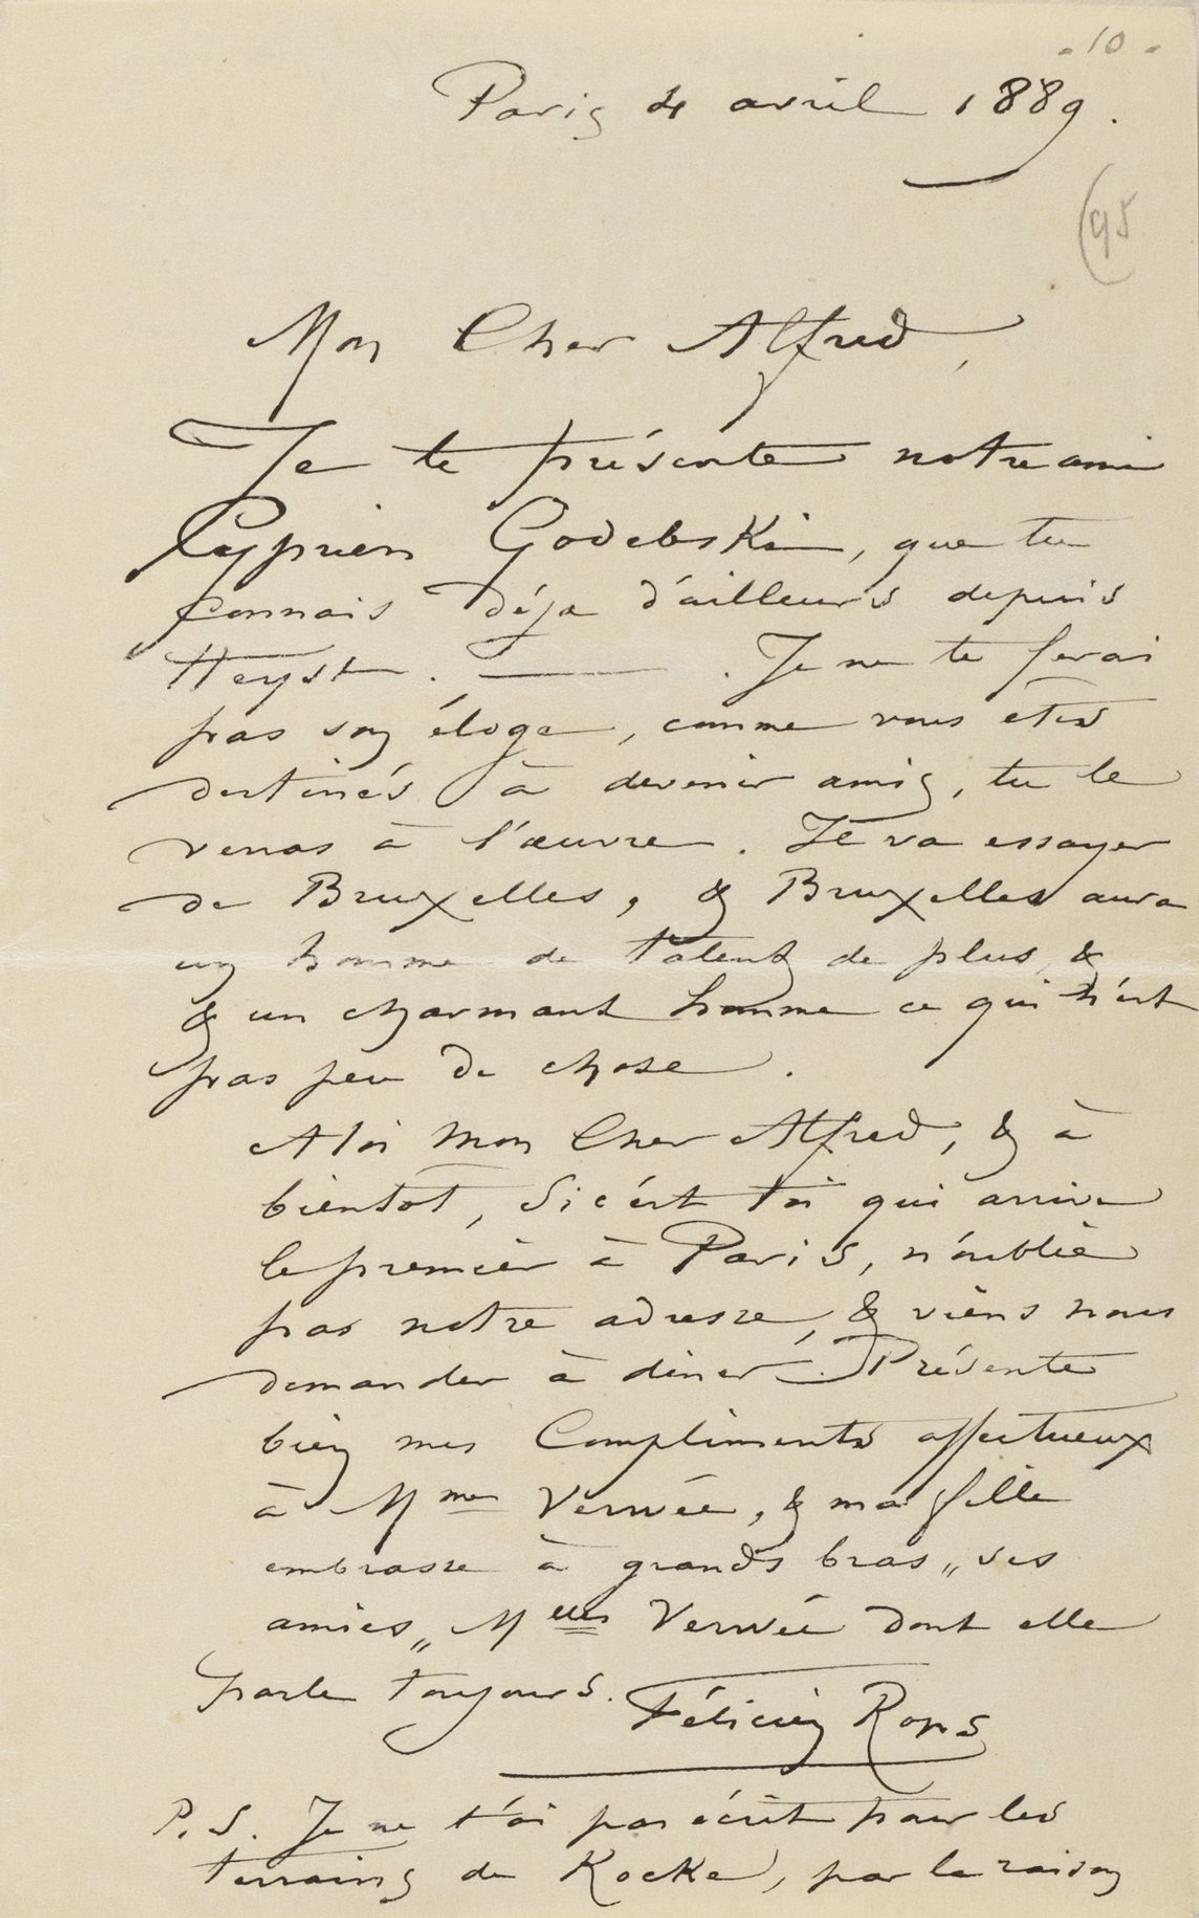 - 10 -
Paris 4 avril 1889.
(95
Mon Cher Alfred,
Je te présente notre ami
Cyprien Godebski, que tu
connais déja d'ailleurs depuis
Heyst. ——— . Je ne te ferai
pas son éloge, comme vous êtes
destinés à devenir amis, tu le
verras à l'œuvre. Il va essayer
de Bruxelles, & Bruxelles aura
un homme de talent de plus &
& un charmant homme ce qui n'est
pas peu de chose.
A toi mon Cher Alfred, & à
bientôt, Si c'est toi qui arrive
le premier à Paris, n'oublie
pas notre adresse, & viens nous
demander à diner. Présente
bien mes Compliments affectueux
à Mme Verwée, & ma fille
embrasse à grands bras „ ses
amies „ Melles Verwée dont elle
parle toujours.
Félicien Rops
P.S. Je ne t'ai pas écrit pour les
terrains de Kocke, par la raison